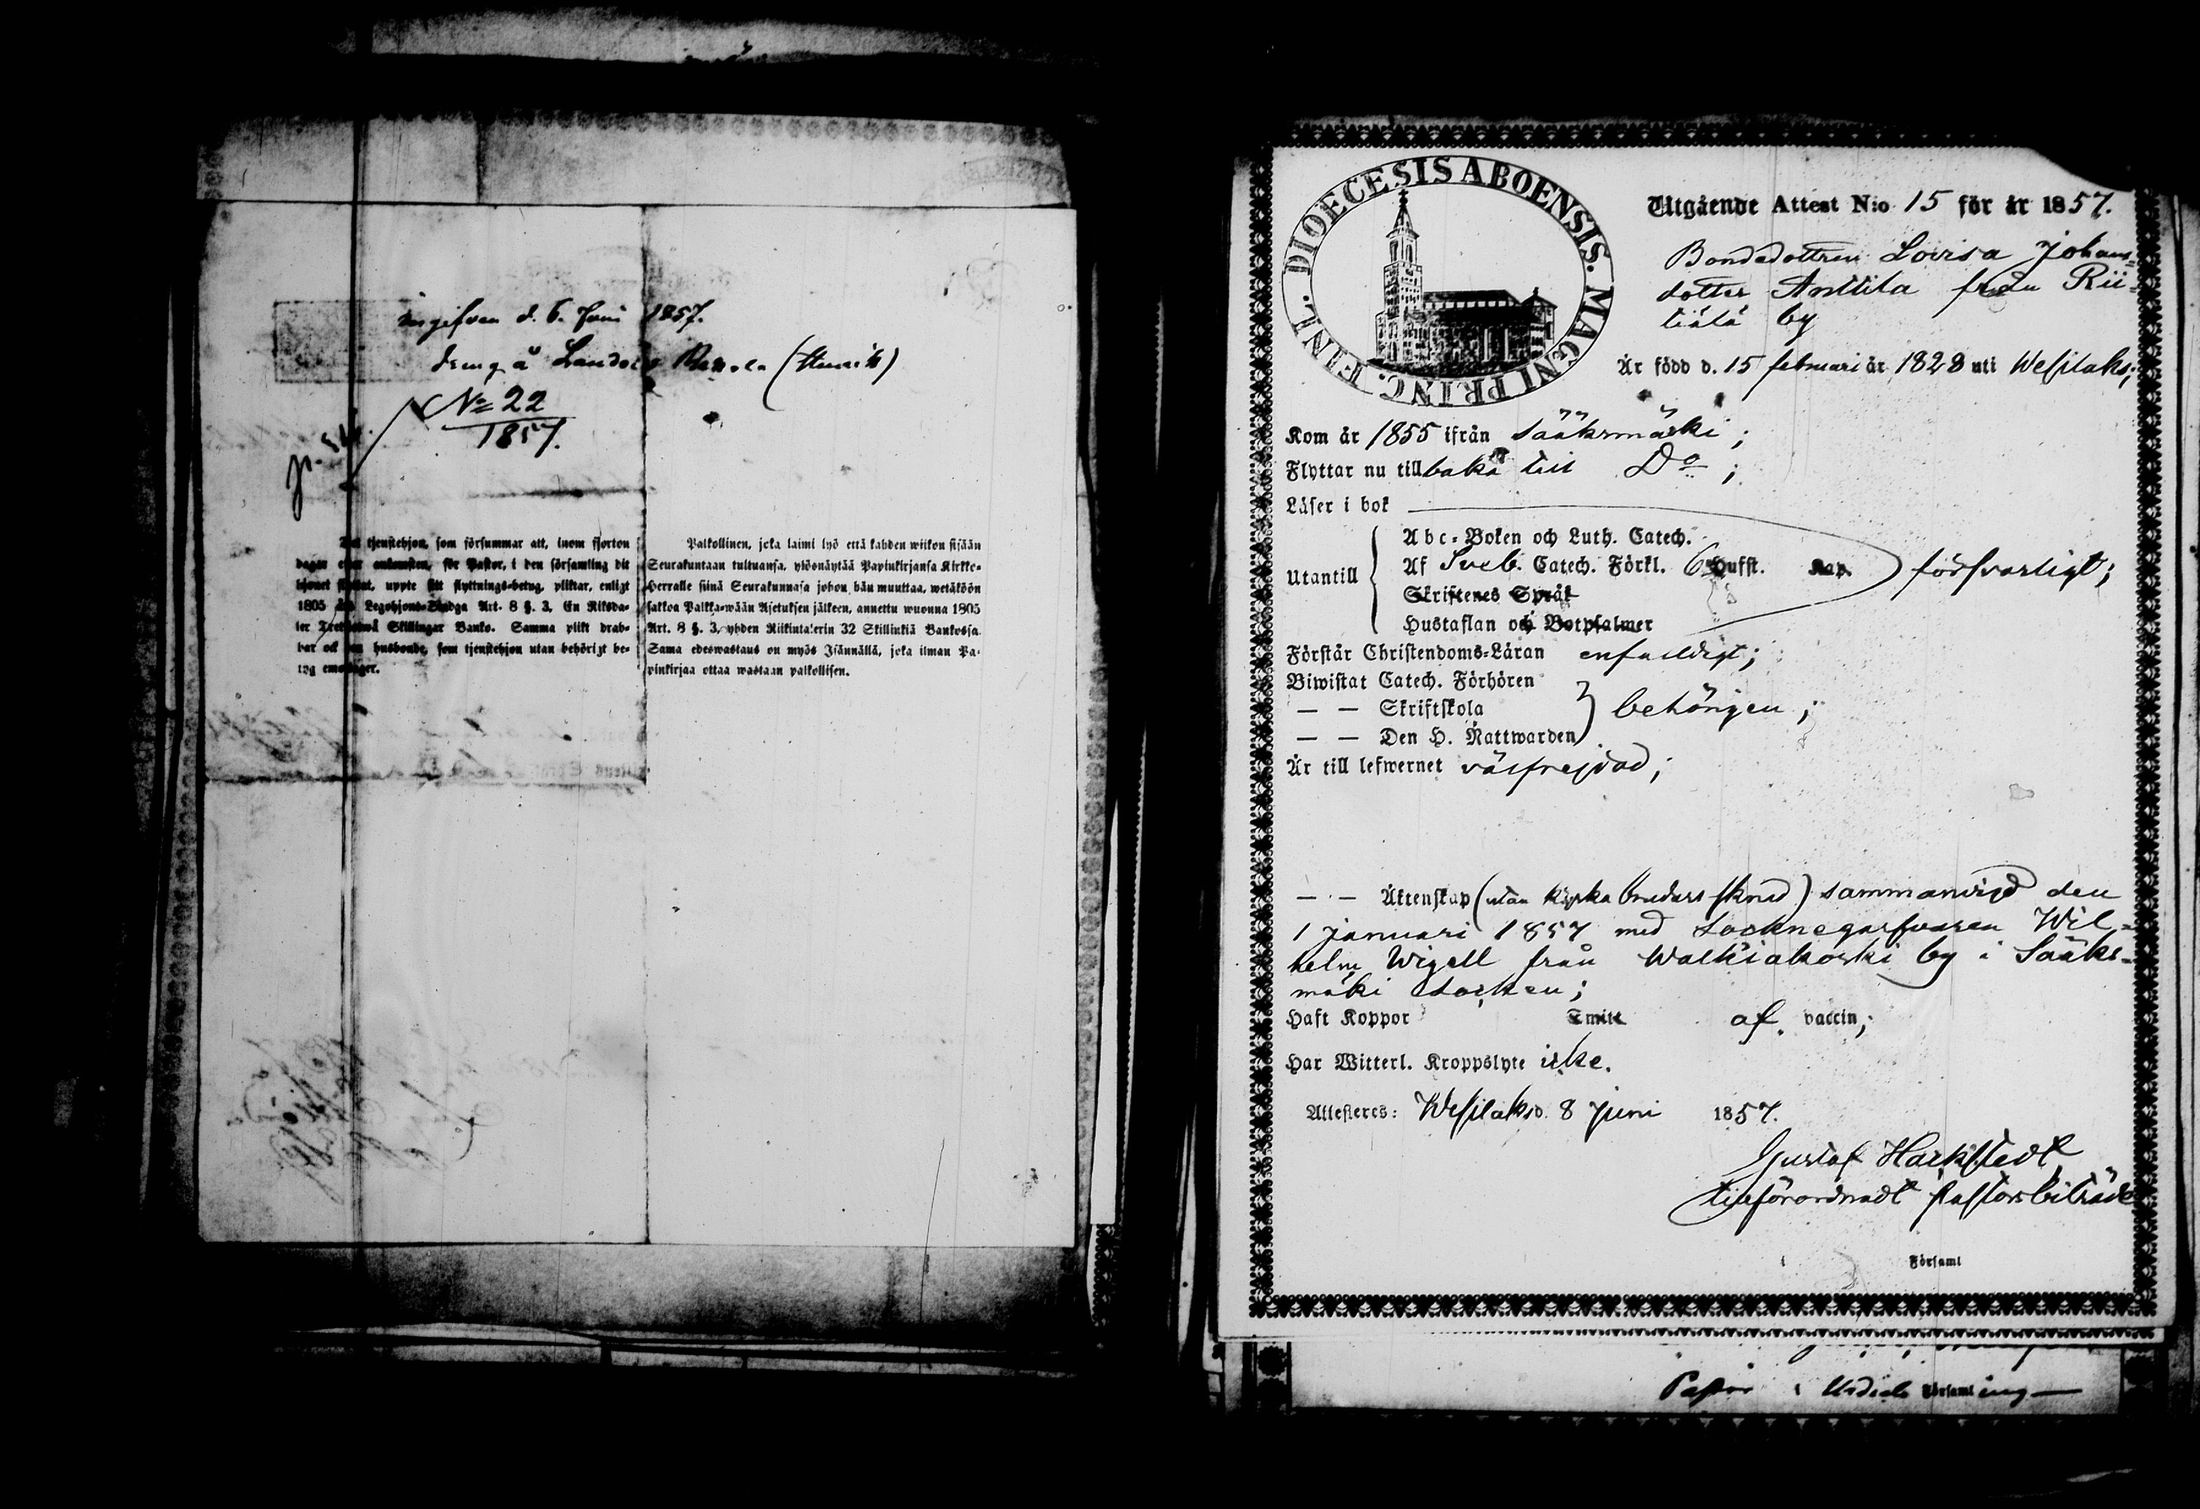 Ingifven d. 6. Juni 1857.
dräng å
No 22
1857.
Det tjenstehjon, som försummar att, inom fjorton
dagar efter ankomsten, för Pastor, i den församling dit
hjonet flyttat, uppte sitt flyttnings-betyg, pliktar, enligt
1805 års Legohjons-Stadga Art. 8 §. 3, En Riksda-
ler Trettiotwå Skillingar Banko. Samma plikt drab-
bar ock den husbonde, som tjenstehjon utan behörigt be-
tyg emottager.
Palkollinen, joka laimi lyö että kahden wiikon sisään
Seurakuntaan tultuansa, ylösnäyttää Papinkirjansa Kirkko-
Herralle siinä Seurakunnasa johon hän muuttaa, wetäköön
sakkoa Palkka-wään Asetuksen jälkeen, annettu wuonna 1805
Art. 8 §. 3, yhden Riikintalerin 32 Skillinkiä Bankossa.
Sama edeswastaus on myös Isännällä, joka ilman Pa-
pinkirjaa ottaa wastaan palkollisen.
DIOECESIS ABOENSIS. MAGNI PRINC. FINL.
Utgående Attest N:o 15 för år 1857.
Bondedottren Lovisa Johans-
dotter Anttila från Rii-
tiälä by
Är född d. 15 februari år 1828 uti Wesilaks;
Kom år 1855 ifrån Sääksmäki;
Flyttar nu tillbaka till Do;
Läser i bok
Abc-Boken och Luth. Catech.
Utantill Af Sveb. Catech. Förkl. 6 Hufst. Kap. försvarligt;
Skriftenes Språk
Hustaflan och Botpsalmer
Förstår Christendoms-Läran enfaldigt;
Biwistat Catech. Förhören
— — Skriftskola behörigen;
— — Den H. Nattwarden
Är till lefwernet välfrejdad;
— — Äktenskap (utan kyrko brudars skrud) sammanvigd den
1 januari 1857 med Socknegarfvaren Wil-
helm Wigell från Walkiakoski by i Sääks-
mäki Socken;
Haft Koppor Smitt af vaccin;
Har Witterl. Kroppslyte icke.
Attesteres: Wesilaks d. 8 Juni 1857.
Gustaf Harkstedt
tillförordnadt Pastorsbiträde
i Församl
Pastor i Urdiala Församling